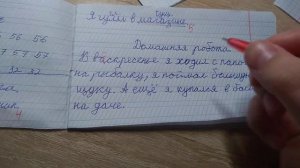 Я ушёл в магазин
5
56 56
57 57
32 32
4
Домашняя работа
В воскресенье я ходил с папой
на рыбалку, я поймал большую
щуку. А ещё я купался в бас
на даче.